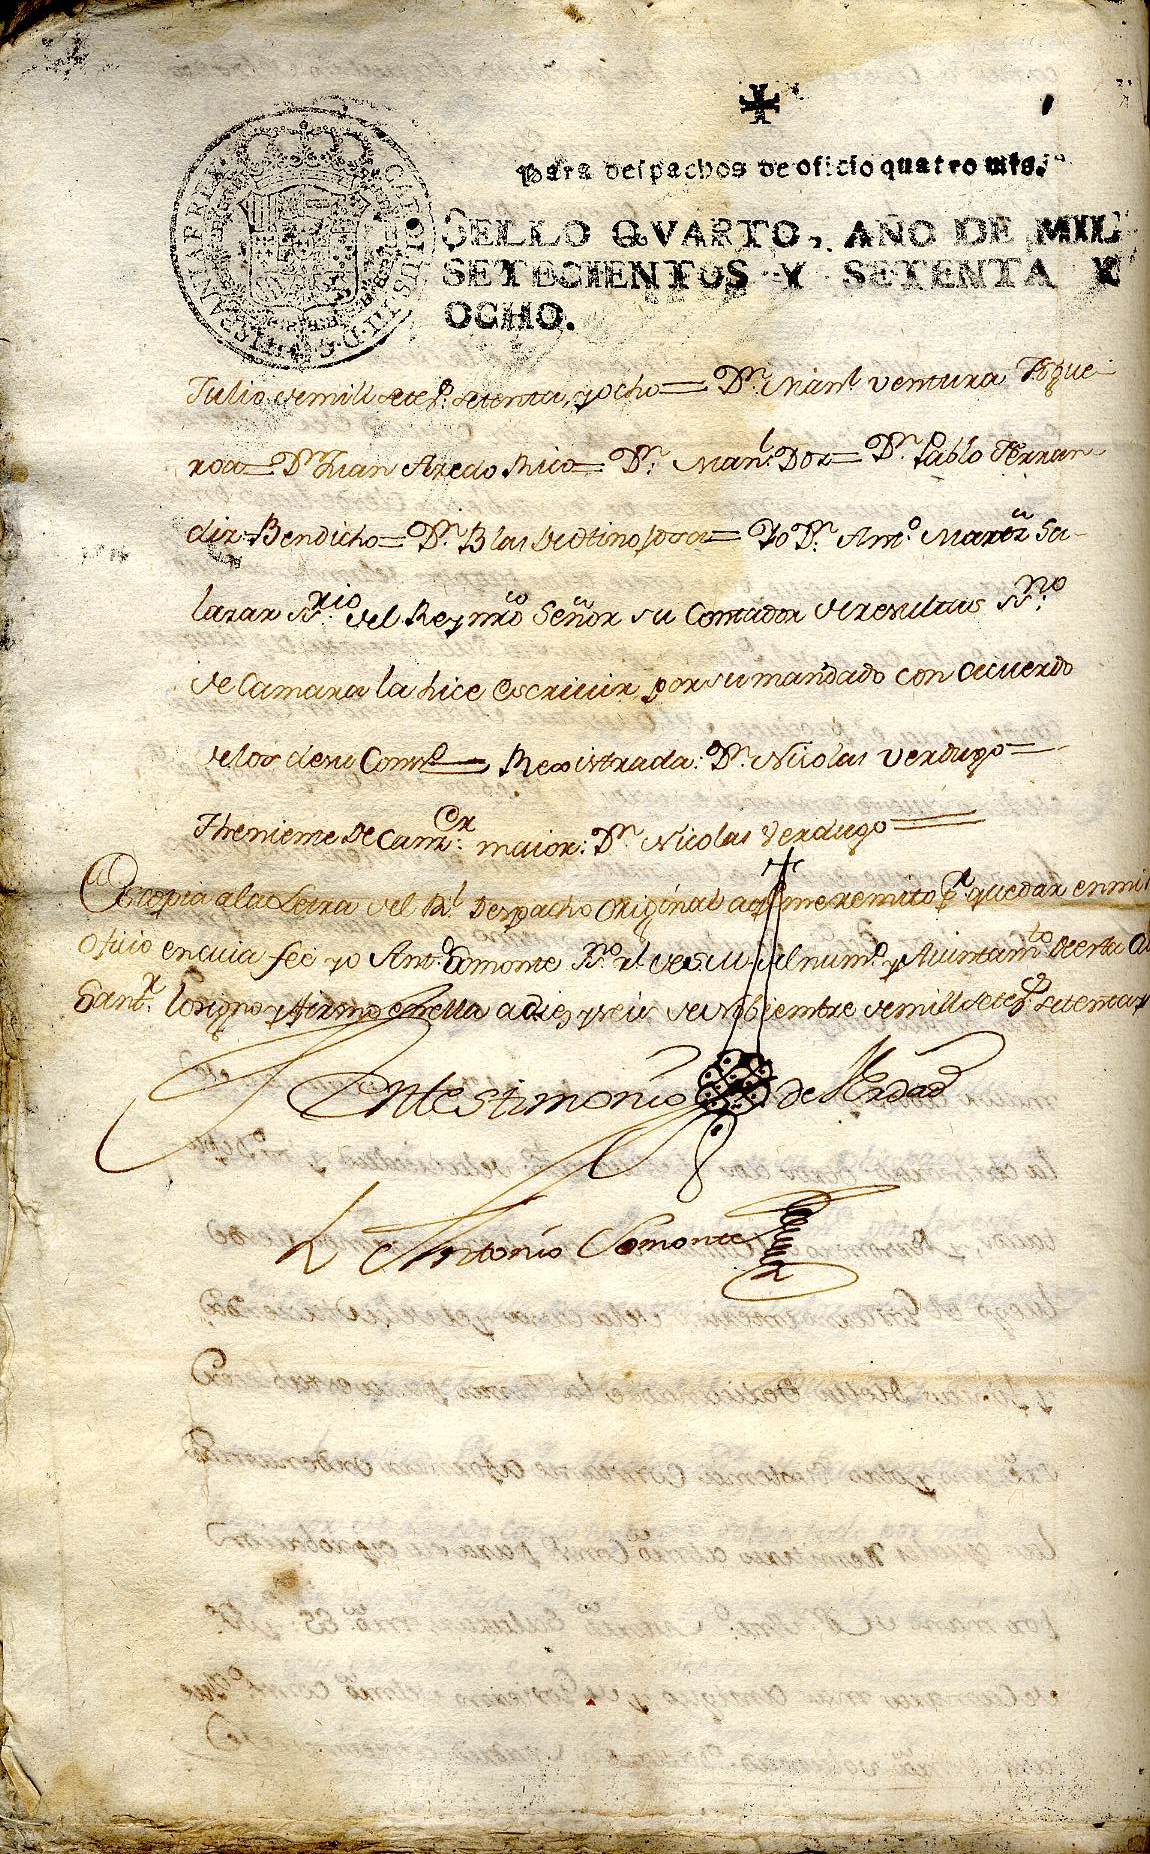 Para despachos de oficio quatro mrs.
SELLO QVARTO, AÑO DE MIL
SETECIENTOS Y SETENTA Y
OCHO.
CAROLUS III D G HISPANIAR REX
Julio de mill setes. setenta, y ocho = Dn. Manl. Ventura Figue-
roa = Dn. Juan Azedo Rico = Dn. Manl. Doz = Dn. Pablo Ferran-
diz Bendicho = Dn. Blas de Hinojosa = Yo Dn. Anto. Martnz. Sa-
lazar Ssrio. del Rey nro Señor su Contador de resultas Ssno.
de Camara la hice escriuir, por su mandado con acuerdo
de los de su Consejo = Rexistrada: Dn. Nicolas Verdugo =
Theniente de Canzer. maior: Dn. Nicolas Verdugo =
Es copia a la Letra del Rl. Despacho Original a q. me remito pa. quedar en mi
Oficio en cuia fee yo Anto. Somonte Sno. del Numo. y Aiuntamto. de esta
Santr. lo signo y firmo en ella a diez y seis de Nobiembre de mill setes. setenta y
En testimonio de Verdad
Antonio Somonte